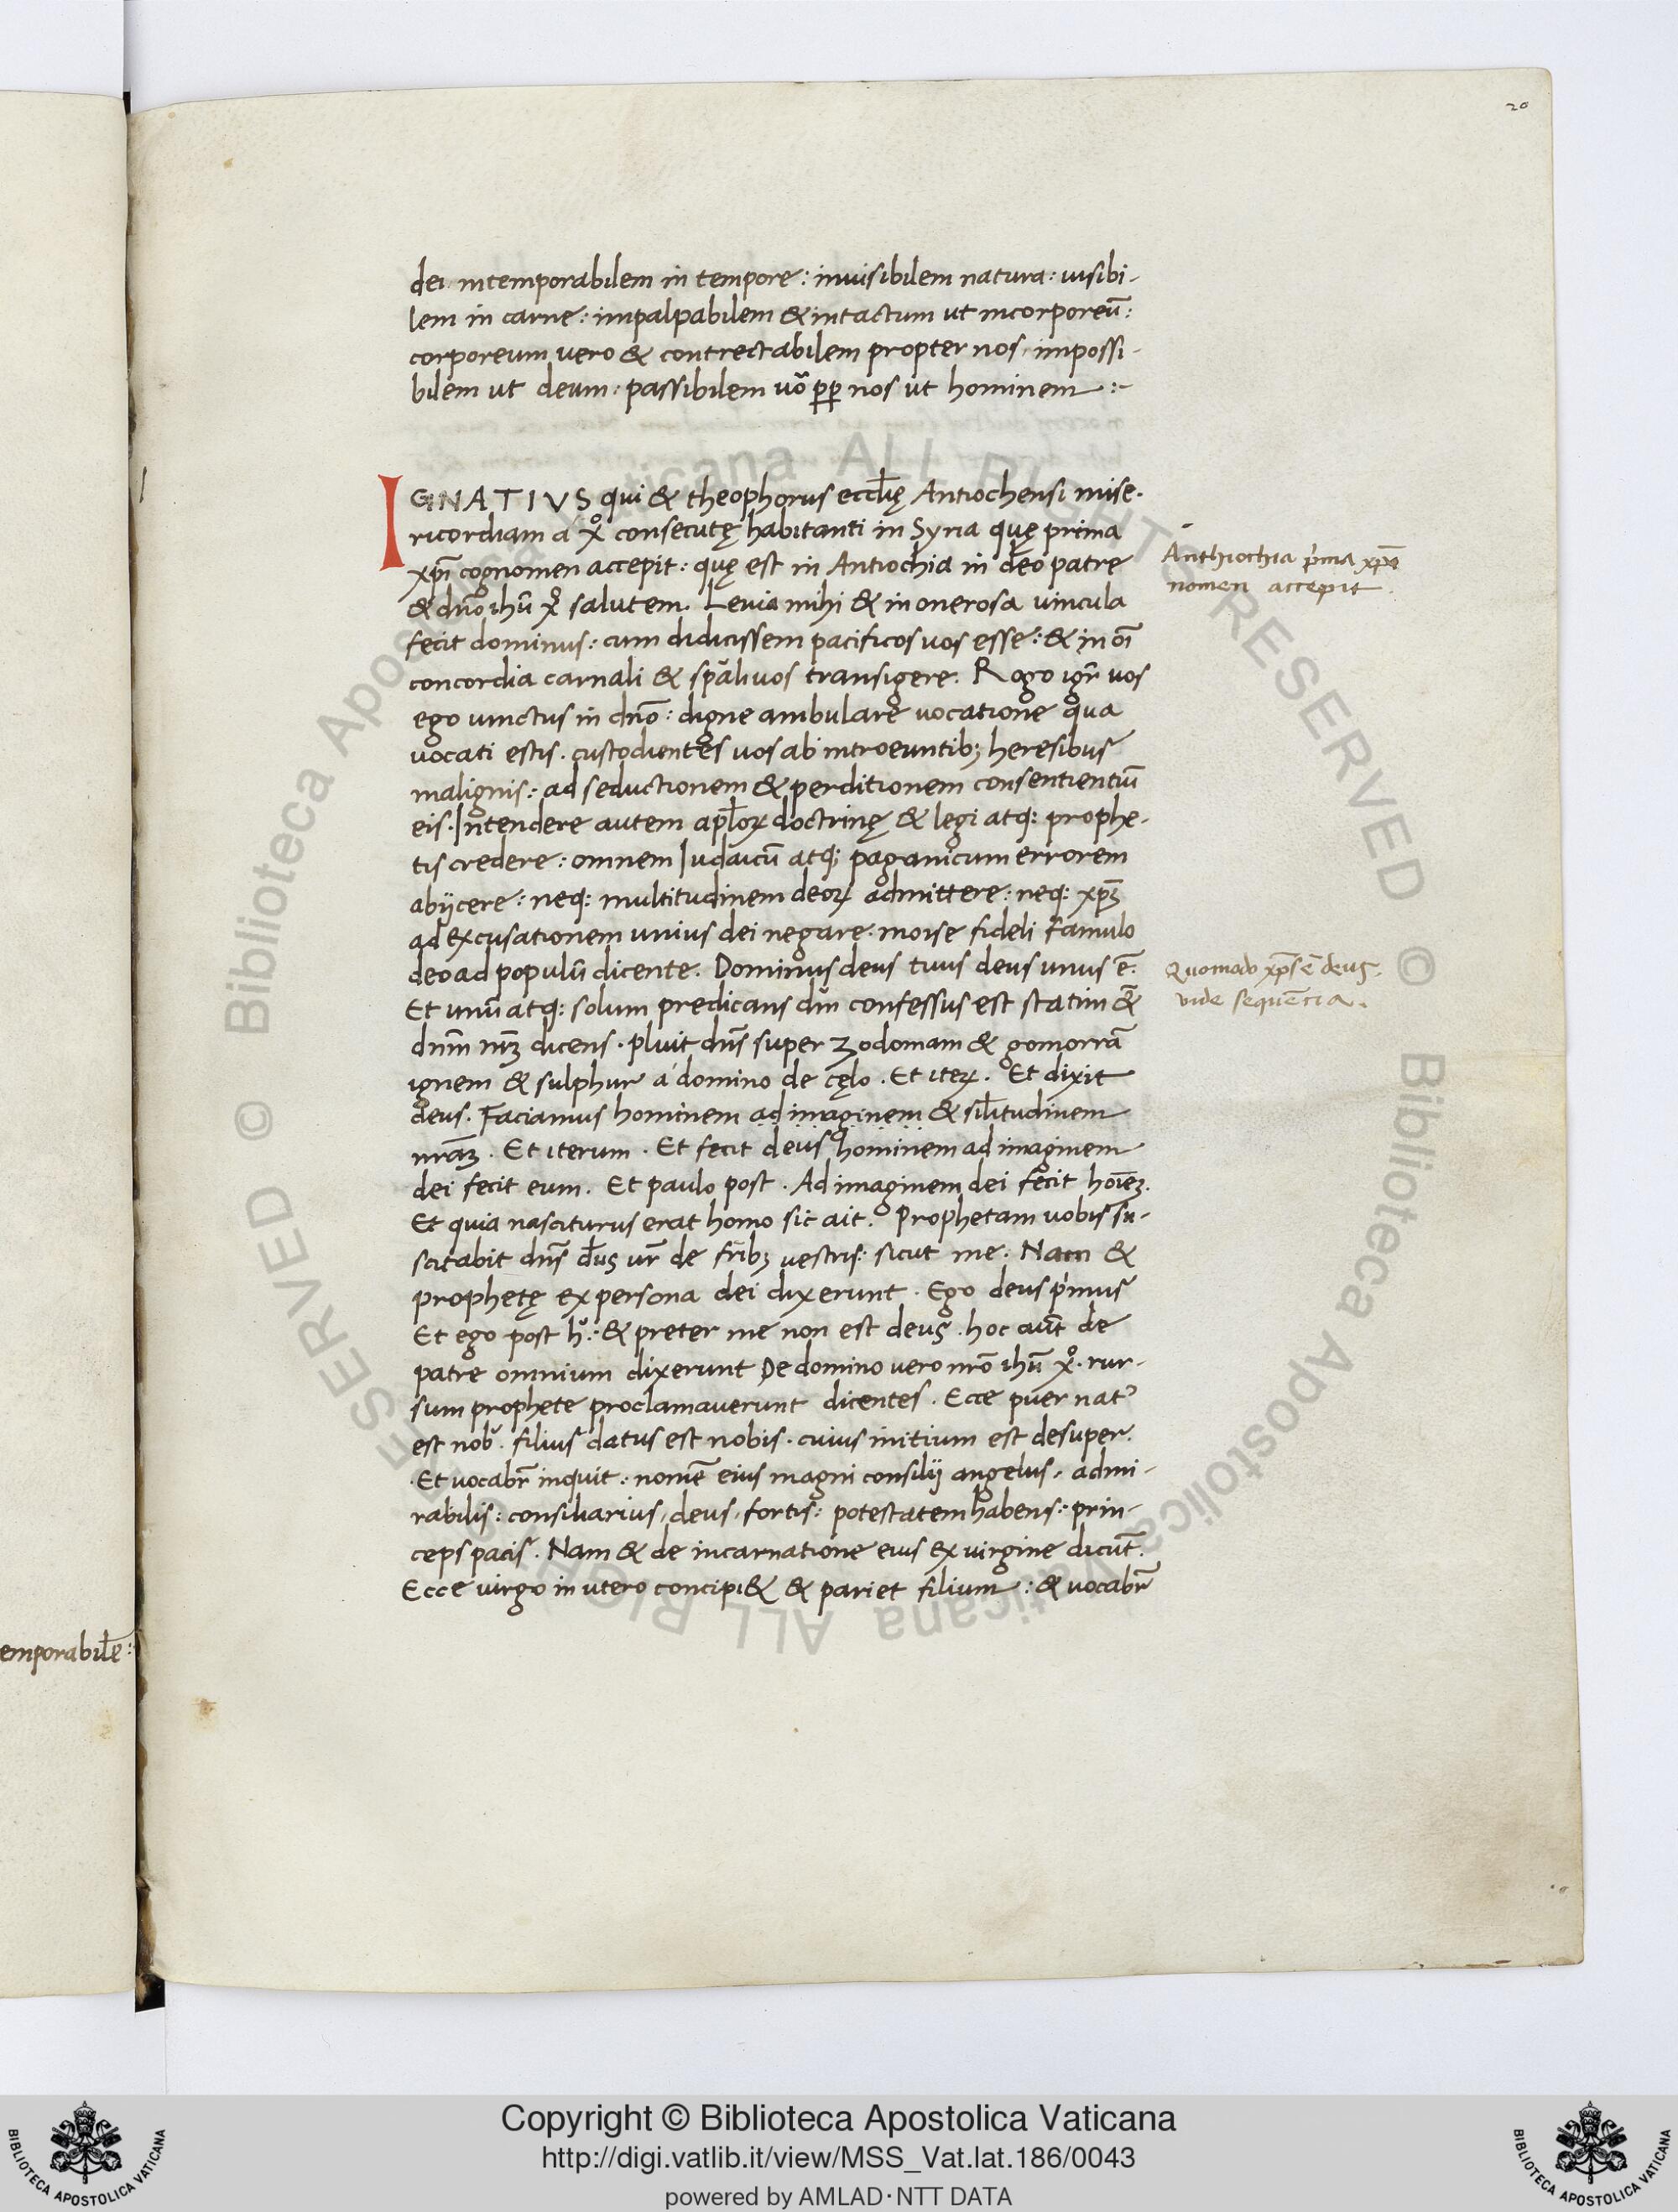 20
dei intemporabilem in tempore: inuisibilem natura: uisibi-
lem in carne: impalpabilem & intactum ut incorporeū:
corporeum vero & contrectabilem propter nos, impossi-
bilem ut deum: passibilem uõ ꝓp nos ut hominem :-
IGNATIVS qui & theophorus eccłię Antiochensi mise-
ricordiam a x̊ consecutę habitanti in Syria quę prima
xp̄i cognomen accepit: quę est in Antiochia in deo patre
& dn̄o ihū x̊ salutem. Leuia mihi & in onerosa uincula
fecit dominus: cum didicissem pacificos uos esse: & in oī
concordia carnali & sp̄ali uos transigere. Rogo igr̄ uos
ego uinctus in dn̄o: digne ambulare uocatione qua
uocati estis. custodientes uos ab introeuntibꝫ heresibus
malignis: ad seductionem & perditionem consentientiū
eis. Intendere autem apłoꝝ doctrinę & legi atqꝫ prophe-
tis credere: omnem Iudaicū atqꝫ paganicum errorem
abijcere: neqꝫ multitudinem deoꝝ admittere: neqꝫ xp̄ꝫ
ad excusationem unius dei negare. moise fideli famulo
deo ad populū dicente. Dominus deus tuus deus unus ē.
Et unū atqꝫ solum predicans dm̄ confessus est statim &̄
dnm̄ nr̄ꝫ dicens. pluit dn̄s super zodomam & gomorrā
ignem & sulphur a domino de cęlo. Et iteꝝ. Et dixit
deus. Faciamus hominem ad imaginem & siłitudinem
nrāꝫ. Et iterum. Et fecit deus hominem ad imaginem
dei fecit eum. Et paulo post. Ad imaginem dei fecit hoiēꝫ.
Et quia nasciturus erat homo sic ait. Prophetam uobis su-
scitabit dn̄s dեus ur̄ de fr̄ibꝫ vestris: sicut me. Nam &
prophetę ex persona dei dixerunt. Ego deus p'mus
Et ego post h̆: & preter me non est deus. hoc aūt de
patre omnium dixerunt De domino vero nr̄o ihū x̊. rur-
sum prophete proclamauerunt dicentes. Ecce puer nat᾽
est nob̆. filius datus est nobis. cuius initium est desuper.
Et uocabr̄ inquit: nomē eius magni consilij angelus, admi-
rabilis: consiliarius, deus, fortis: potestatem habens: prin-
ceps pacis. Nam & de incarnatione eius ex uirgine dicūt.
Ecce uirgo in utero concipi& & pariet filium: & uocabr̄
Anthiochia p'ma
nomen accepit.
Quomodo xp̄s ē deus.
uide sequētia.
emporabilē:
Copyright © Biblioteca Apostolica Vaticana
http://digi.vatlib.it/view/MSS_Vat.lat.186/0043
powered by AMLAD·NTT DATA
BIBLIOTECA APOSTOLICA VATICANA
BIBLIOTECA APOSTOLICA VATICANA